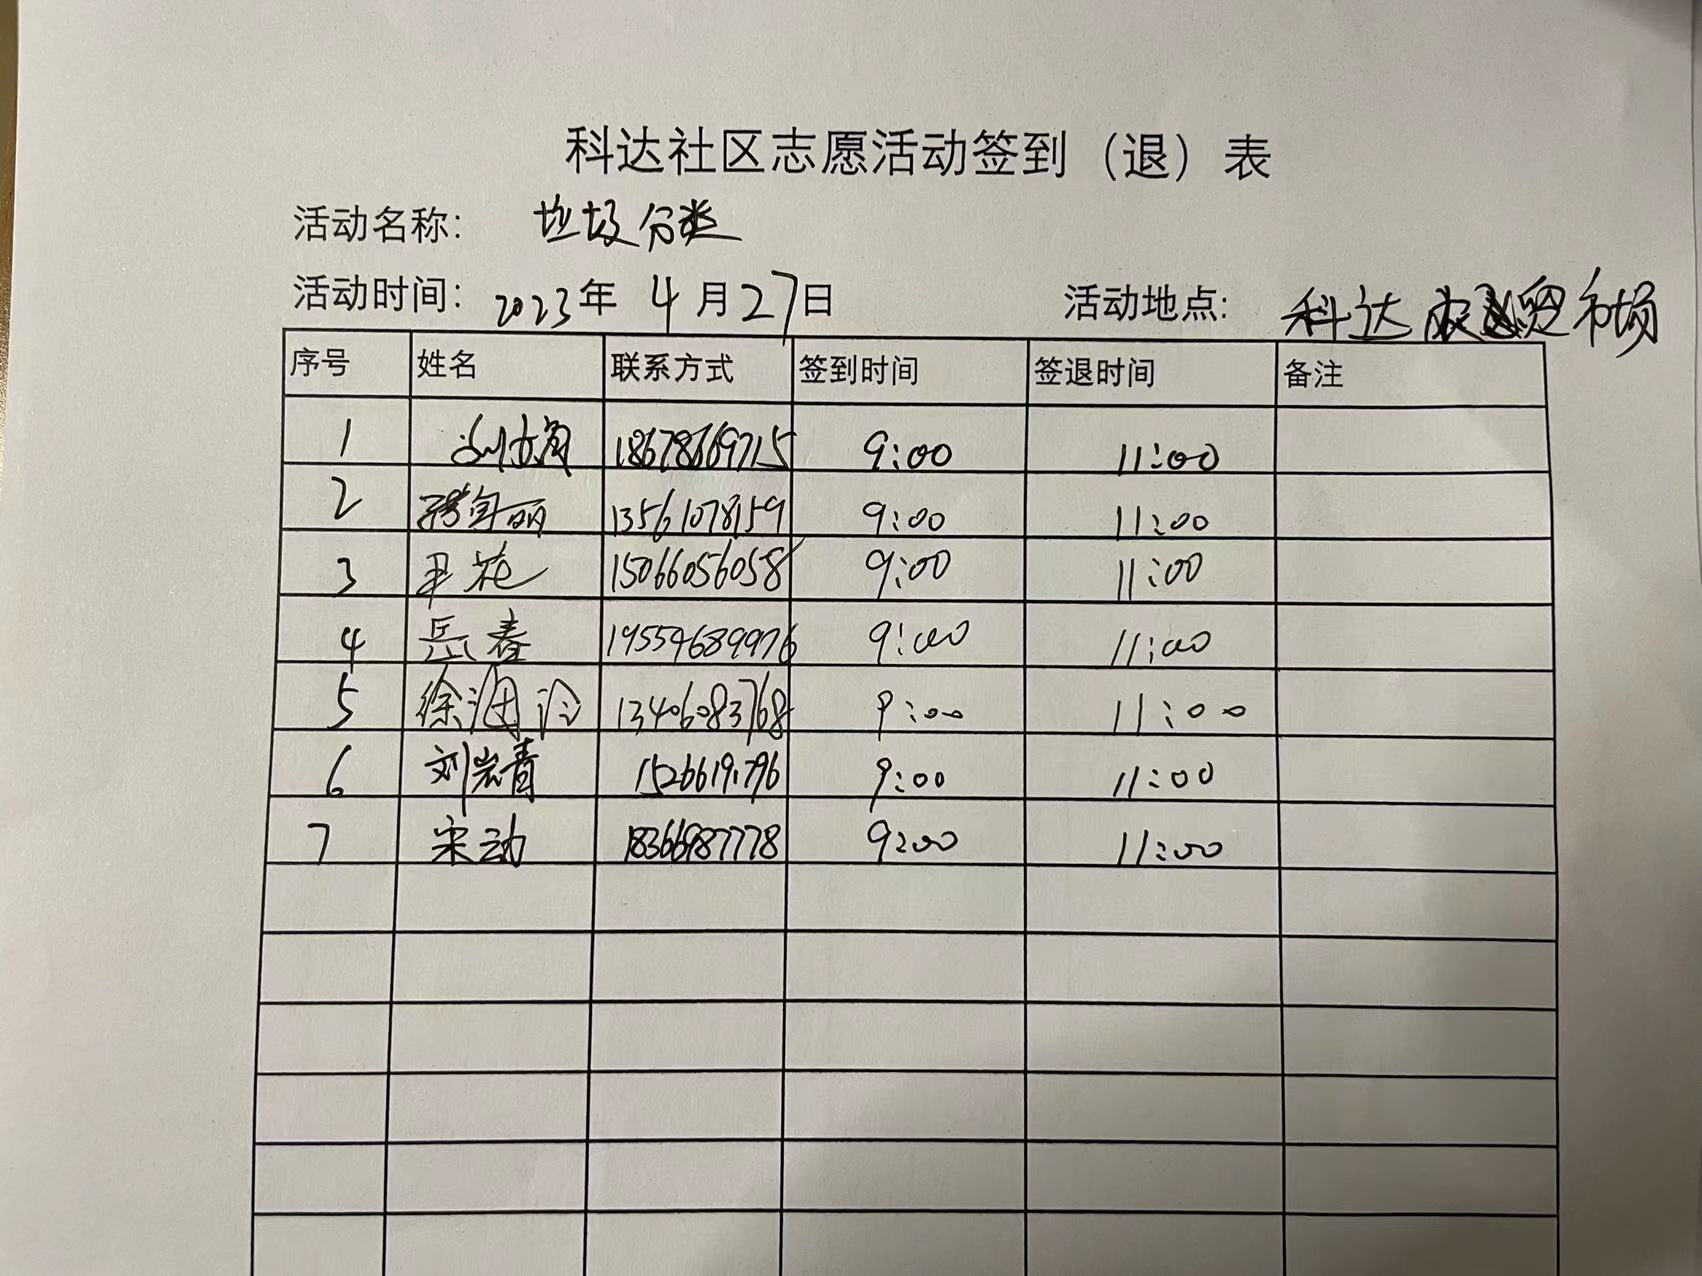 科达社区志愿活动签到（退）表
活动名称： 垃圾分类
活动时间：2023年 4月27日 活动地点: 科达农贸市场
序号 姓名 联系方式 签到时间 签退时间 备注
1 18678669715 9:00 11:00
2 13561078159 9:00 11:00
3 尹花 15066056058 9:00 11:00
4 岳春 19554689976 9:00 11:00
5 徐润泠 13406083768 9:00 11:00
6 刘岩青 9:00 11:00
7 宋动 18366987778 9:00 11:00